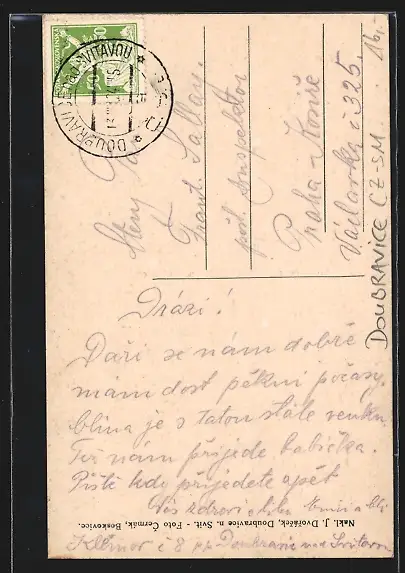 DOUBRAVICE nad SVITAVOU
Ctěný Pan
Frant. Sallay.
pošt. inspektor
Praha - Košíře
Václavka č 325.
DOUBRAVICE CZ-SM
16,-
Drazí!
Daří se nám dobře
mám dost pěkný počasy.
je s tatou stále venku.
Též nám přijede babička.
Pište kdy přijedete opět
Vás zdraví
č 8 Doubravice nad Svitavou
Nakl. J. Dvořáček, Doubravice n. Svit. - Foto Čermák, Boskovice.